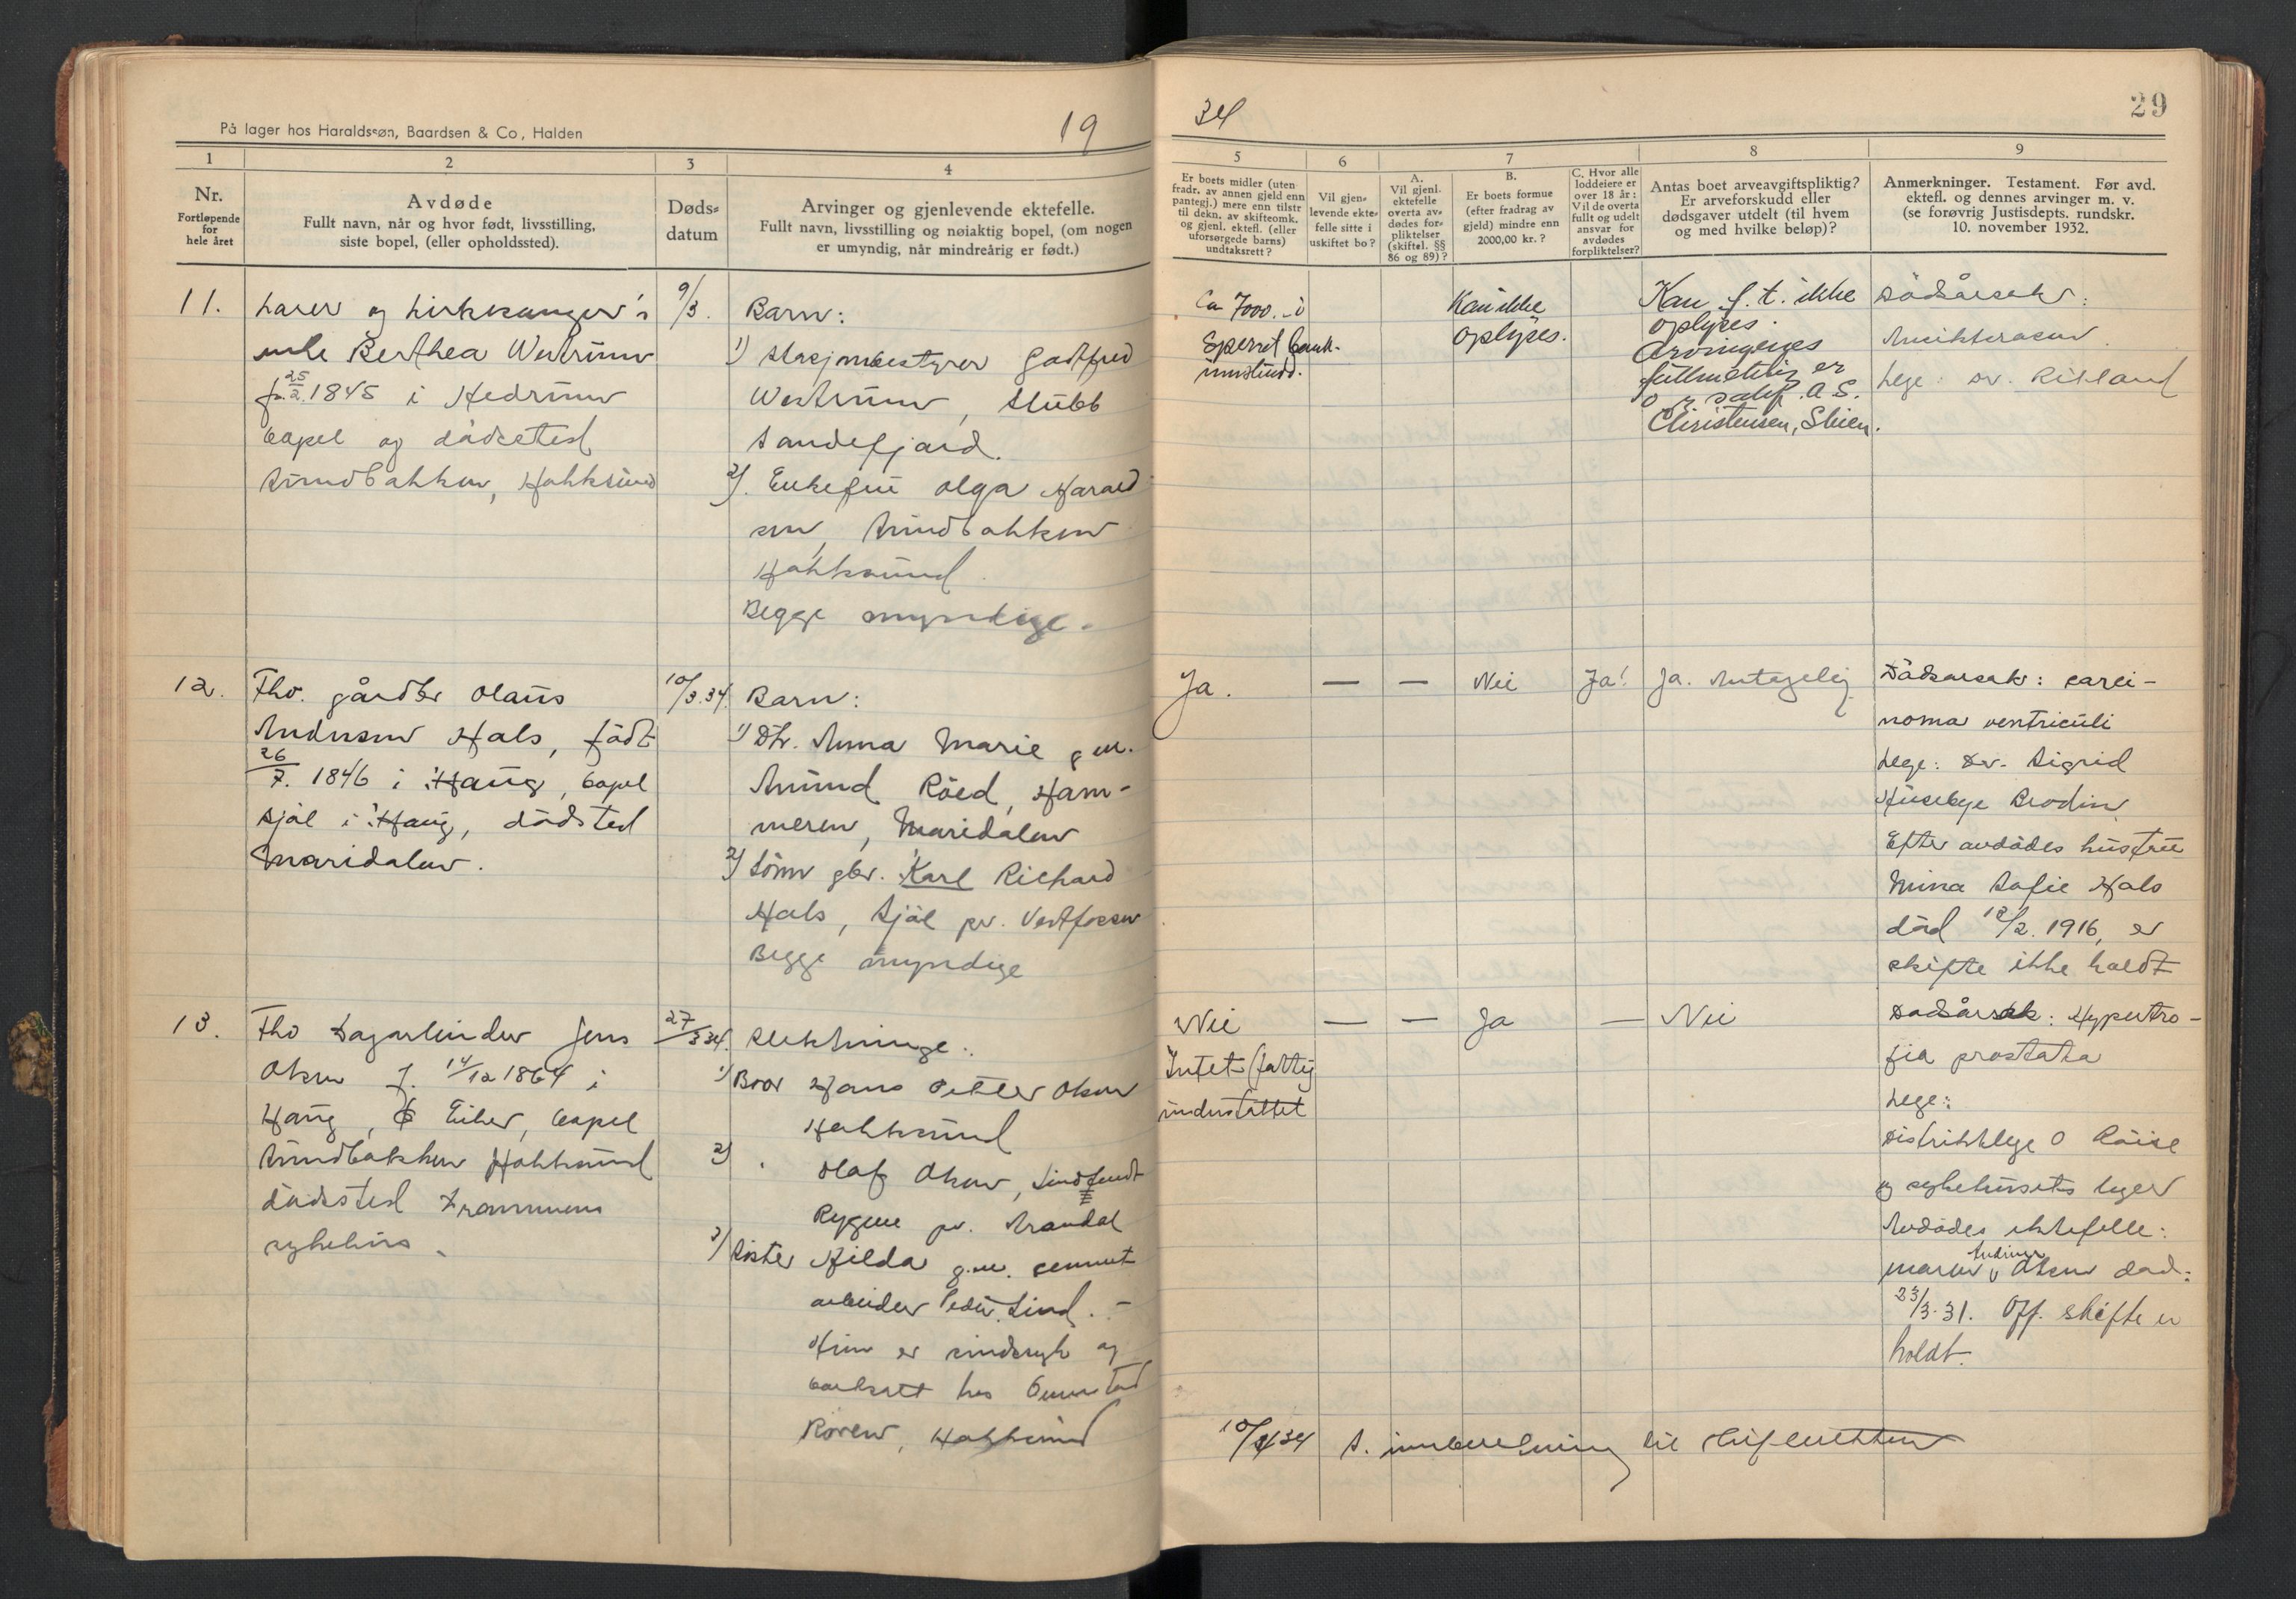 På lager hos Haraldssøn, Baardsen & Co, Halden
19
1
2
3
4
Nr.
Fortløpende
for
hele året
Avdøde
Fullt navn, når og hvor født, livsstilling,
siste bopel, (eller opholdssted).
Døds-
datum
Arvinger og gjenlevende ektefelle.
Fullt navn, livsstilling og nøiaktig bopel, (om nogen
er umyndig, når mindreårig er født.)
11.
Lærer og kirkesanger's
enke Berthea Westrum
f. 25/2. 1845 i Hedrum
bopel og dødssted
Sundbakken, Hokksund
9/3.
Barn:
1) Stasjonsbestyrer Godtfred
Westrum, Stubb
Sandefjord.
2). Enkefru Olga Harald
sen, Sundbakken
Hokksund
Begge myndige.
12.
Fhv. gårdbr Olaus
Andersen Hals, født
26/7. 1846 i Haug, bopel
Sjøl i Haug, dødsted
Maridalen.
10/3.34.
Barn:
1) Dtr. Anna Marie g.m.
Amund Röed, Ham-
meren, Maridalen
2) Sönn gbr. Karl Richard
Hals, Sjöl pr. Vestfossen
Begge myndige
13.
Fhv Dagarbeider Jens
Olsen f. 14/12 1864 i
Haug, Eiker, bopel
Sundbakken Hokksund
dödssted Drammens
sykehus.
27/3 34.
Slektninge:
1) Bror Hans Petter Olsen
Hokksund
2) " Olaf Olsen,
Rygene pr. Arendal
3) Söster Hilda g.m. sement
arbeider Peder Lind. -
Hun er sindssyk og
bortsatt hos Gunstad
Roren, Hokksund
34
29
5
6
7
8
9
Er boets midler (uten
fradr. av annen gjeld enn
pantegj.) mere enn tilstr
til dekn. av skifteomk.
og gjenl. ektefl. (eller
uforsørgede barns)
undtaksrett?
Vil gjen-
levende ekte-
felle sitte i
uskiftet bo?
A.
Vil gjenl.
ektefelle
overta av-
dødes for-
pliktelser
(skiftel. §§
86 og 89)?
B.
Er boets formue
(efter fradrag av
gjeld) mindre enn
2000,00 kr.?
C. Hvor alle
loddeiere er
over 18 år:
Vil de overta
fullt og udelt
ansvar for
avdødes
forpliktelser?
Antas boet arveavgiftspliktig?
Er arveforskudd eller
dødsgaver utdelt (til hvem
og med hvilke beløp)?
Anmerkninger. Testament. Før avd.
ektefl. og dennes arvinger m. v.
(se forøvrig Justisdepts. rundskr.
10. november 1932.
Ca 7000.- i
Sperret bank-
innskudd.
Kan ikke
oplyses.
Kan f. t. ikke
oplyses.
Arvingenes
fullmektig er
o.r.sakf. A S.
Christensen, Skien.
Dödsårsak:
Lege: Dr. Rikland
Ja.
—
—
Nei
Ja!
Ja. Antagelig
Dödsarsak: carci-
noma ventriculi
Lege: Dr. Sigrid
Huseby Brodin
Efter avdödes hustru
Mina Sofie Hals
död 18/2. 1916, er
skifte ikke holdt
Nei
Intet (fattig
understöttet
—
—
Ja
—
Nei
Dödsårsak: Hypertro-
fia prostata
Lege:
Distriktslege O Röise
og sykehusets leger
Avdödes ektefelle:
Maren Andrine Olsen död:
23/3.31. Off. skifte er
holdt.
10/4 34 S. innberetning til skifteretten